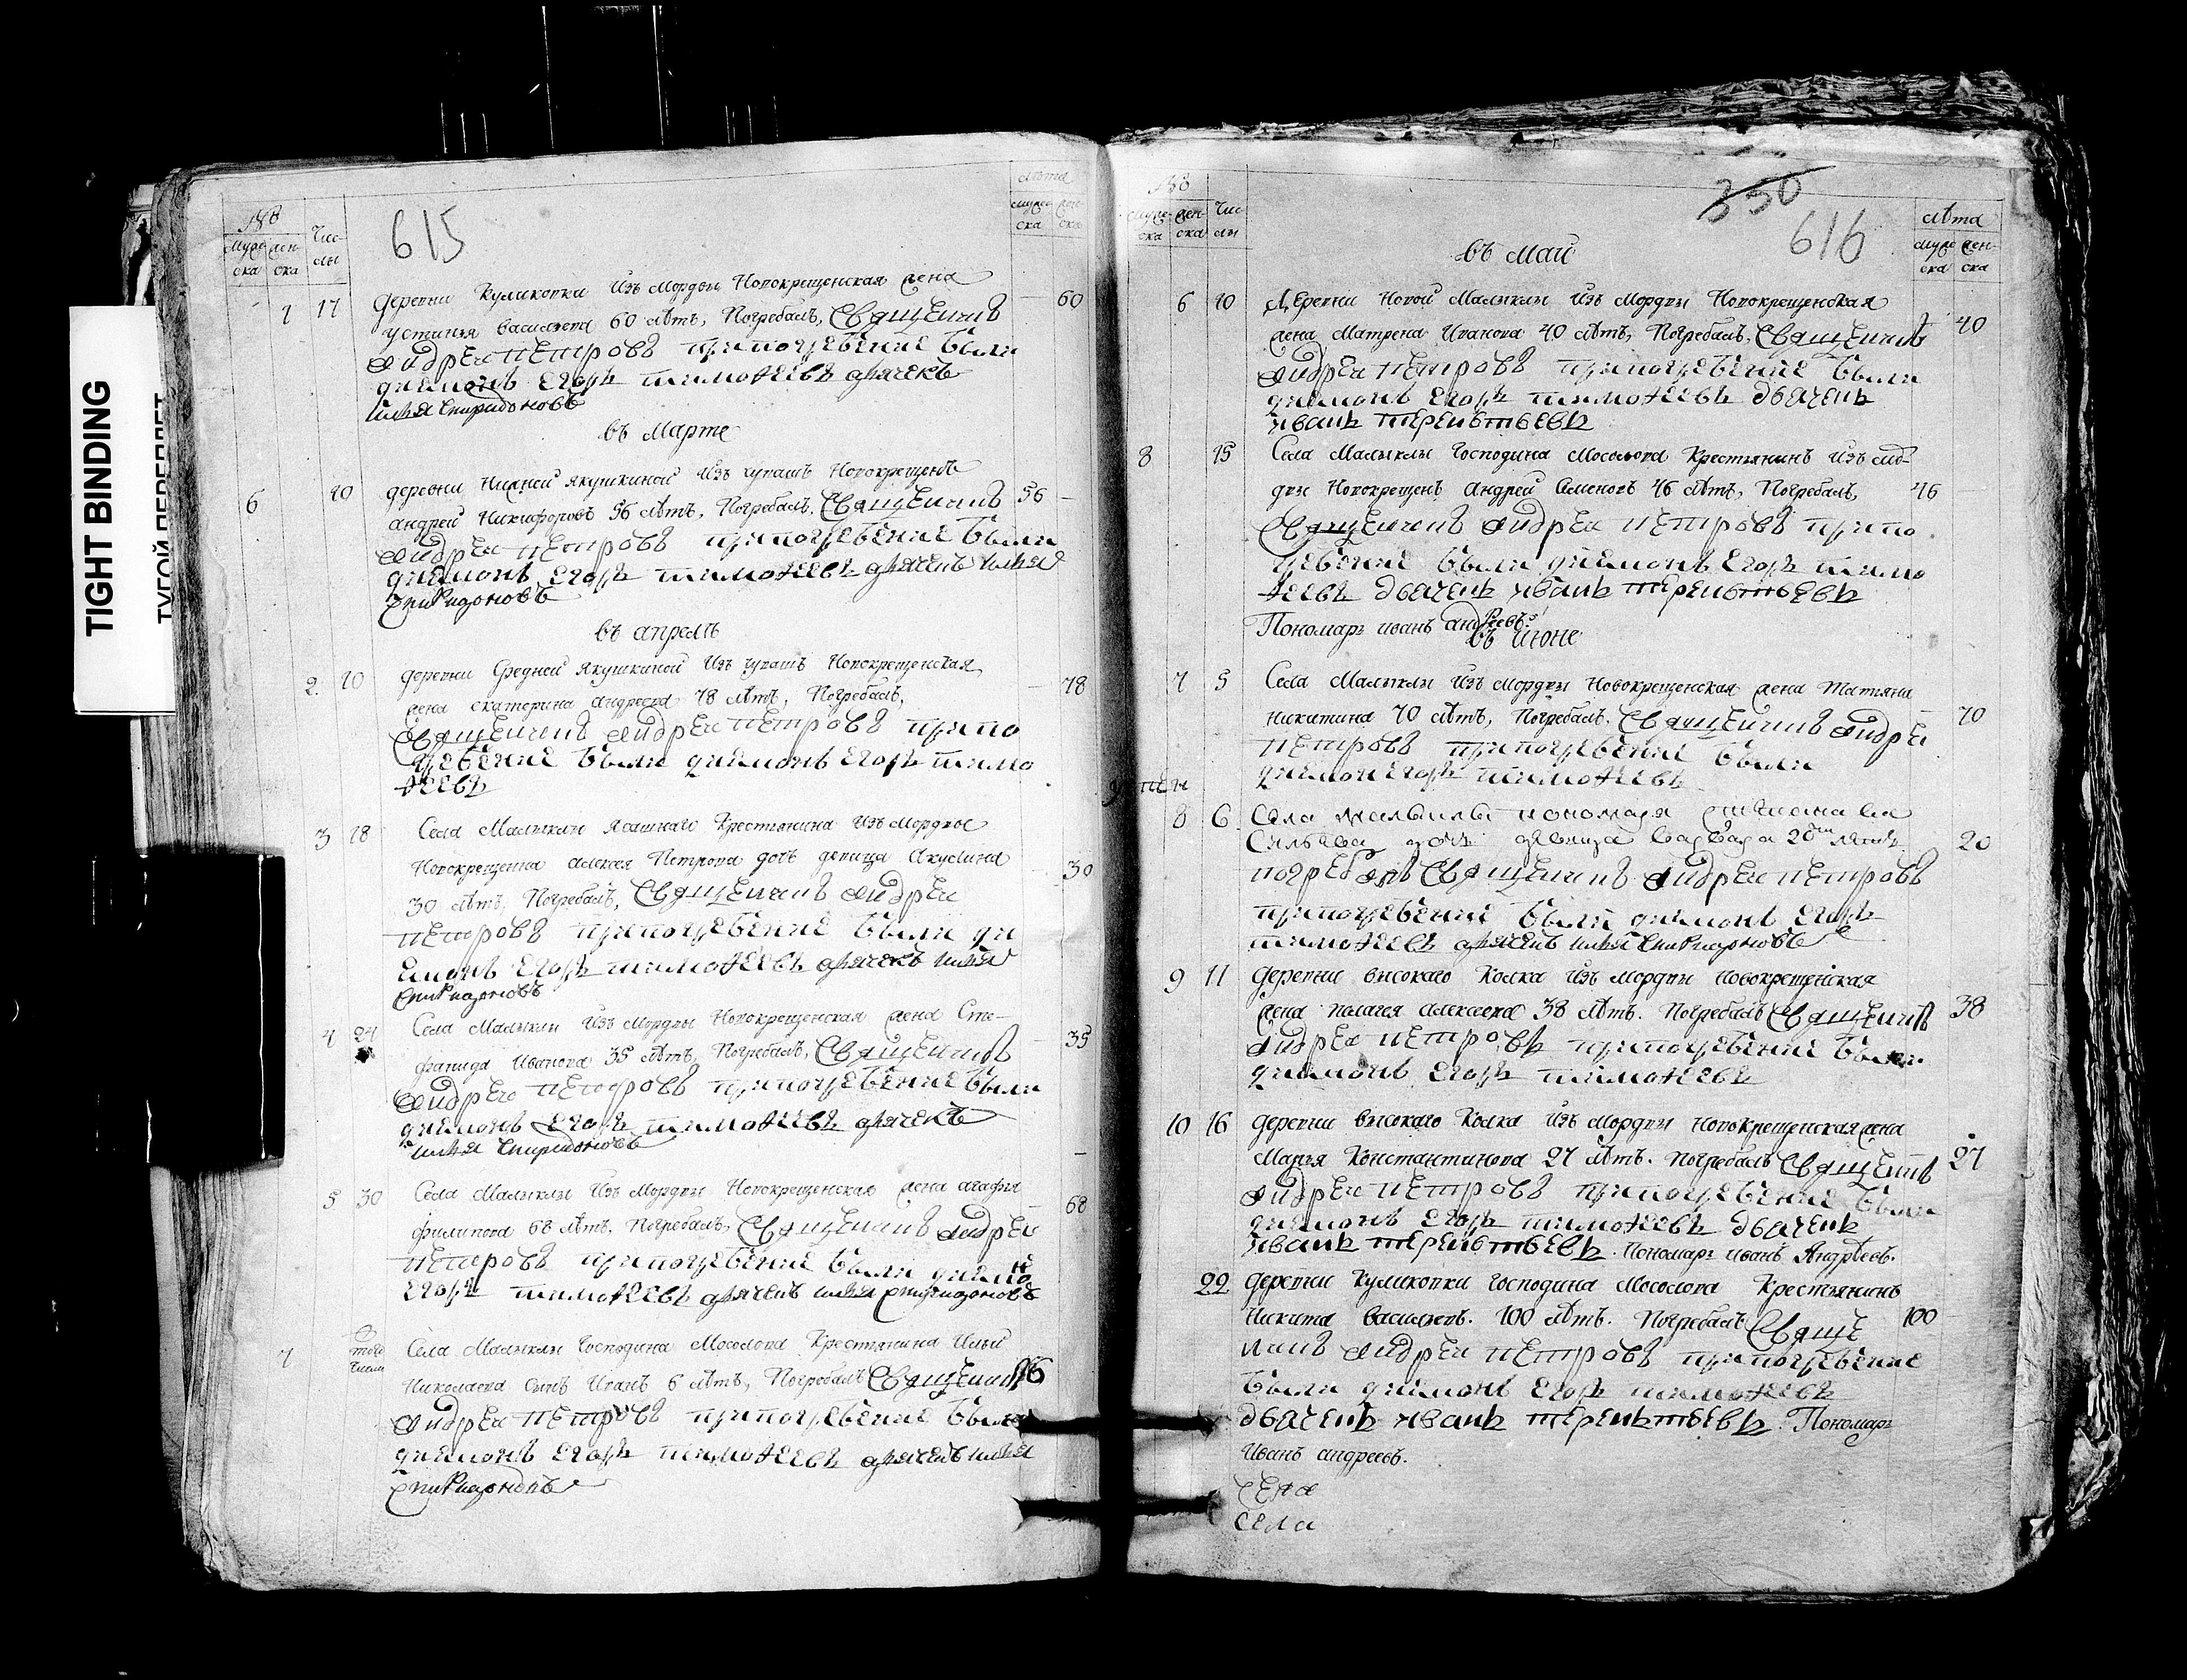 TIGHT BINDING
ТУГОЙ ПЕРЕПЛЕТ
615
№
Муже
ска
жен-
ска
Чис-
лы
лѣта
муже
ска
жен-
ска
1 17 деревни Куликовки Изъ мордвы Новокрещенская жена 60
устинья васильева 60 лѣтъ, Погребалъ, Священникъ
Андреи петровъ при погребение были
диаконъ Егоръ тимофеевъ дьячекъ
илья спиридоновъ
въ Марте
6 10 деревни Нижней якушкиной Изъ чувашъ Новокрещенъ
андрей Никифоровъ 56 лѣтъ, Погребалъ, Священникъ 56
Андреи петровъ при погребение были
диаконъ Егоръ тимофеевъ дьячекъ илья
спиридоновъ
въ апрелъ
2. 10 деревни Средней якушкиной Изъ чувашъ Новокрещенская
жена екатерина андреева 78 лѣтъ, Погребалъ, 78
Священникъ Андреи петровъ при по
гребение были диаконъ Егоръ тимо
феевъ
3 18 Села Малыклы ясашнаго Крестьянина Изъ мордвы
Новокрещенна алексея Петрова дочь девица Акулина 30
30 лѣтъ, Погребалъ, Священникъ Андреи
петровъ при погребение были ди
яконъ Егоръ тимофеевъ дьячекъ илья
спиридоновъ
4 24 Села Малыклы Изъ мордвы Новокрещенская жена Сте- 35
фанида Иванова 35 лѣтъ, Погребалъ, Священникъ
Андреи петровъ при погребение были
диаконъ Егоръ тимофеевъ дьячекъ
илья спиридоновъ
5 30 Села Малыклы Изъ мордвы Новокрещенская жена агафья 68
филипова 68 лѣтъ, Погребалъ, Священникъ Андреи
петровъ при погребение были диякон
Егоръ тимофеевъ дьячекъ илья спиридоновъ
7 того числа Села Малыклы Господина Мосолова Крестьянина Ильи
Николаева сынъ Иванъ 6 лѣтъ, Погребалъ Священникъ 6
Андреи петровъ при погребение были
диаконъ Егоръ тимофеевъ дьячекъ илья
спиридоновъ
350
616
№
муже-
ска
жен-
ска
Чис-
лы
лѣта
муже
ска
жен-
ска
въ маи
6 10 Деревни Новой Малыклы Изъ мордвы Новокрещенская
жена Матрена Иванова 40 лѣтъ, Погребалъ, Священникъ 40
Андреи петровъ при погребение были
диаконъ Егоръ тимофеевъ дьячекъ
иванъ терентьевъ
8 15 Села Малыклы Господина Мосолова Крестьянинъ Изъ мор-
двы Новокрещенъ Андрей Семеновъ 46 лѣтъ, Погребалъ, 46
Священникъ Андреи петровъ при по
гребение были диаконъ Егоръ тимо
феевъ дьячекъ иванъ терентьевъ
Пономарь иванъ андреевъ
въ июне
7 5 Села Малыклы Изъ мордвы Новокрещенская жена Татьяна
никитина 70 лѣтъ, Погребалъ, Священникъ Андреи 70
петровъ при погребение были
диакон Егоръ тимофеевъ
8 6 Села малыклы пономаря
дочь девица варвара 20 лѣтъ 20
погребалъ Священникъ Андреи петровъ
при погребение были диаконъ Егоръ
тимофеевъ дьячекъ илья спиридоновъ
9 11 деревни высокаго Колка Изъ мордвы новокрещенская
жена пелагея алексеева 38 лѣтъ. Погребалъ Священникъ 38
Андреи петровъ при погребение были
диаконъ Егоръ тимофеевъ
10 16 деревни высокаго Колка Изъ мордвы Новокрещенская жена
Марья Константинова 27 лѣтъ. Погребалъ Священникъ 27
Андреи петровъ при погребение были
диаконъ Егоръ тимофеевъ дьячекъ
иванъ терентьевъ. Пономарь иванъ Андреевъ.
22 деревни Куликовки господина Мосолова Крестьянинъ
Никита васильевъ. 100 лѣтъ. Погребалъ Свяще 100
никъ Андреи петровъ при погребение
были диаконъ Егоръ тимофеевъ
дьячекъ иванъ терентьевъ. Пономарь
Иванъ андреевъ.
села
села